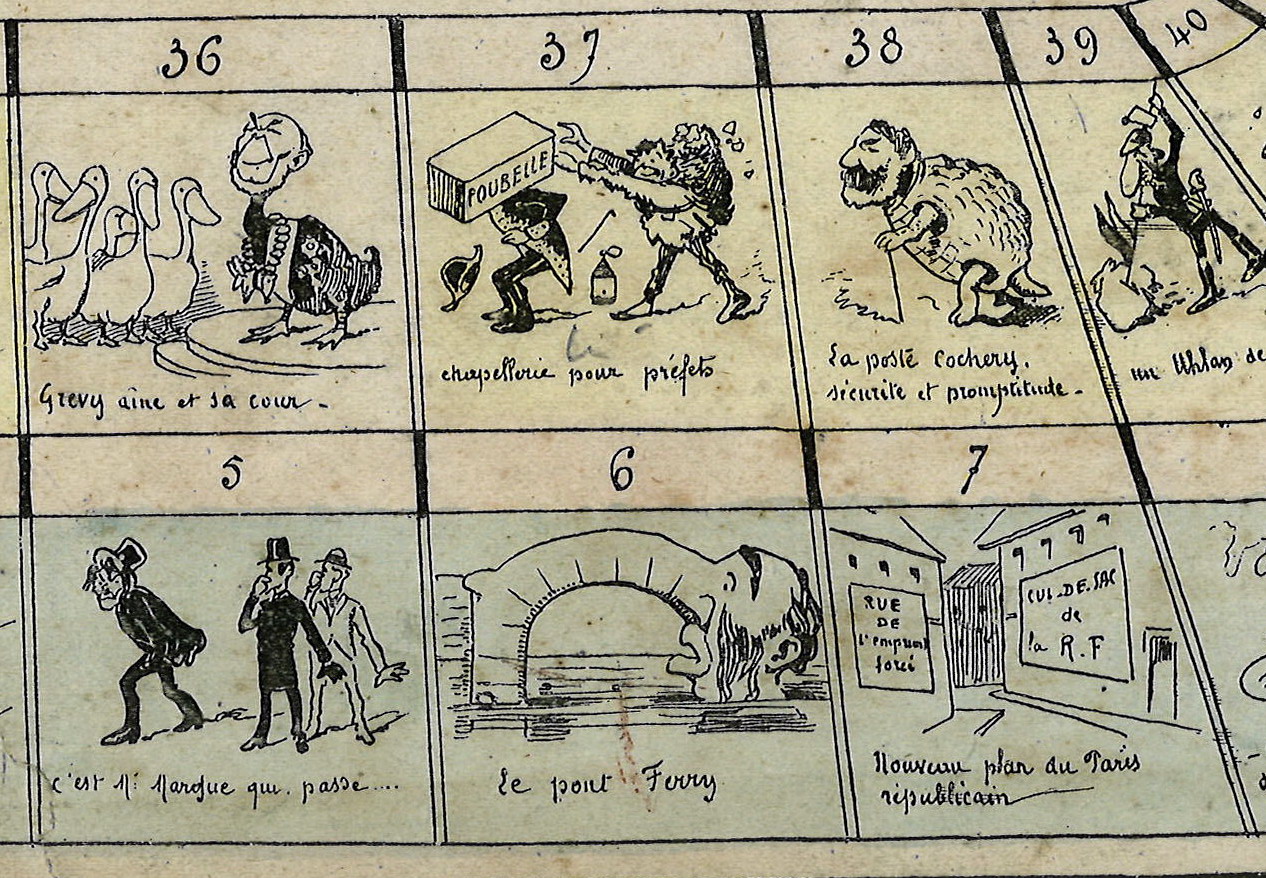 36
37
38
39
40
POUBELLE
Grevy aîné et sa cour -
chapellerie pour préfets
La poste Cochery.
sécurité et promptitude -
un Uhlan de
5
6
7
RUE
DE
l'emprunt
forcé
CUL-DE-SAC
de
la R.F
c'est Mr Margue qui passe....
Le pont Ferry
Nouveau plan du Paris
républicain